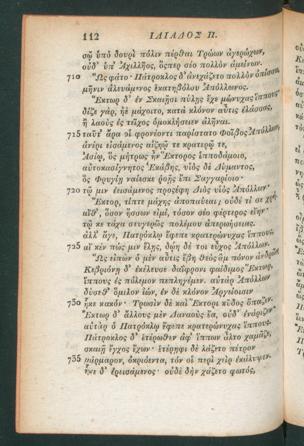 112 ΙΛΙΑΔΟΣ Π.
σῷ ὑπὸ δουρὶ πόλιν πέρθαι Τρώων ἀγερώχων,
οὐδ' ὑπ' Ἀχιλλῆος, ὅσπερ σέο πολλὸν ἀμείνων.
710 Ὣς φάτο· Πάτροκλος δ' ἀνεχάζετο πολλὸν ὀπίσσω,
μῆνιν ἀλευάμενος ἑκατηβόλου Ἀπόλλωνος.
Ἕκτωρ δ' ἐν Σκαιῇσι πύλῃς ἔχε μώνυχας ἵππους·
δίζε γὰρ, ἠὲ μάχοιτο, κατὰ κλόνον αὖτις ἐλάσσας,
ἦ λαοὺς ἐς τεῖχος ὁμοκλήσειεν ἀλῆναι.
715 ταῦτ' ἄρα οἱ φρονέοντι παρίστατο Φοῖβος Ἀπόλλων,
ἀνέρι εἰσάμενος αἰζηῷ τε κρατερῷ τε,
Ἀσίῳ, ὃς μήτρως ἦν Ἕκτορος ἱπποδάμοιο,
αὐτοκασίγνητος Ἑκάβης, υἱὸς δὲ Δύμαντος,
ὃς Φρυγίῃ ναίεσκε ῥοῇς ἔπι Σαγγαρίοιο·
720 τῷ μιν ἐεισάμενος προσέφη Διὸς υἱὸς Ἀπόλλων·
Ἕκτορ, τίπτε μάχης ἀποπαύεαι; οὐδέ τί σε χρή.
αἴθ', ὅσον ἥσσων εἰμὶ, τόσον σέο φέρτερος εἴην·
τῷ κε τάχα στυγερῶς πολέμου ἀπερωήσειας.
ἀλλ' ἄγε, Πατρόκλῳ ἔφεπε κρατερώνυχας ἵππους,
725 αἴ κέν πώς μιν ἕλῃς, δώῃ δέ τοι εὖχος Ἀπόλλων.
Ὣς εἰπὼν ὁ μὲν αὖτις ἔβη θεὸς ἂμ πόνον ἀνδρῶν·
Κεβριόνῃ δ' ἐκέλευσε δαΐφρονι φαίδιμος Ἕκτωρ,
ἵππους ἐς πόλεμον πεπληγέμεν. αὐτὰρ Ἀπόλλων
δύσεθ' ὅμιλον ἰὼν, ἐν δὲ κλόνον Ἀργείοισιν
730 ἧκε κακόν· Τρωσὶν δὲ καὶ Ἕκτορι κῦδος ὄπαζεν.
Ἕκτωρ δ' ἄλλους μὲν Δαναοὺς ἔα, οὐδ' ἐνάριζεν·
αὐτὰρ ὁ Πατρόκλῳ ἔφεπε κρατερώνυχας ἵππους.
Πάτροκλος δ' ἑτέρωθεν ἀφ' ἵππων ἆλτο χαμᾶζε,
σκαιῇ ἔγχος ἔχων· ἑτέρηφι δὲ λάζετο πέτρον
735 μάρμαρον, ὀκριόεντα, τόν οἱ περὶ χεὶρ ἐκάλυψεν.
ἧκε δ' ἐρεισάμενος· οὐδὲ δὴν χάζετο φωτός,